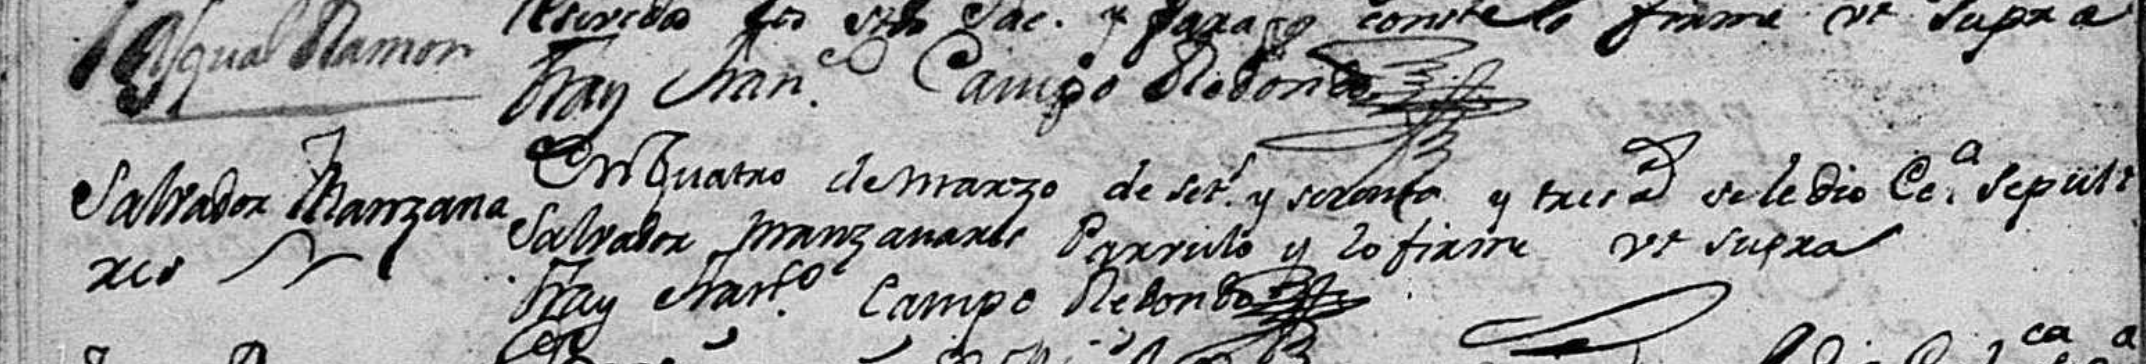 Pasqual Ramon
para q conste lo firme vt supra
Fray Fran.co Campo Redondo
Salvador Manzana
res
En quatro de Marzo de set.ta y tres a se le dio Ec.a sepult
Salvador Manzanares Parvulo y lo firme vt supra
Fray Fran.co Campo Redondo